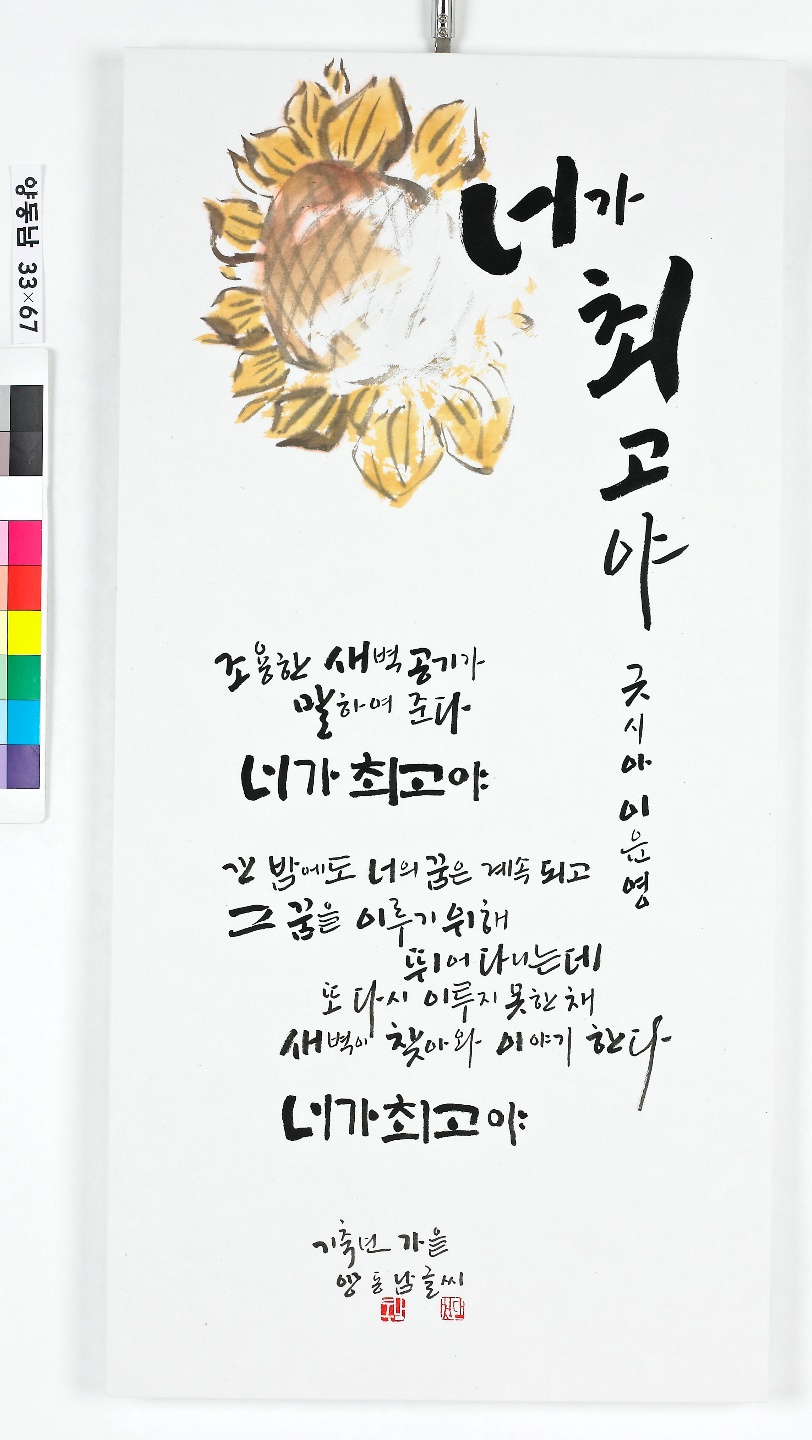 양동남 33×67
너가
최
고
야
굿시아이은영
조용한 새벽 공기가
말하여 준다
너가 최고야
긴 밤에도 너의 꿈은 계속 되고
그 꿈을 이루기 위해
뛰어 다니는데
또 다시 이루지 못한 채
새벽이 찾아와 이야기 한다
너가 최고야
기축년 가을
양동남 글씨